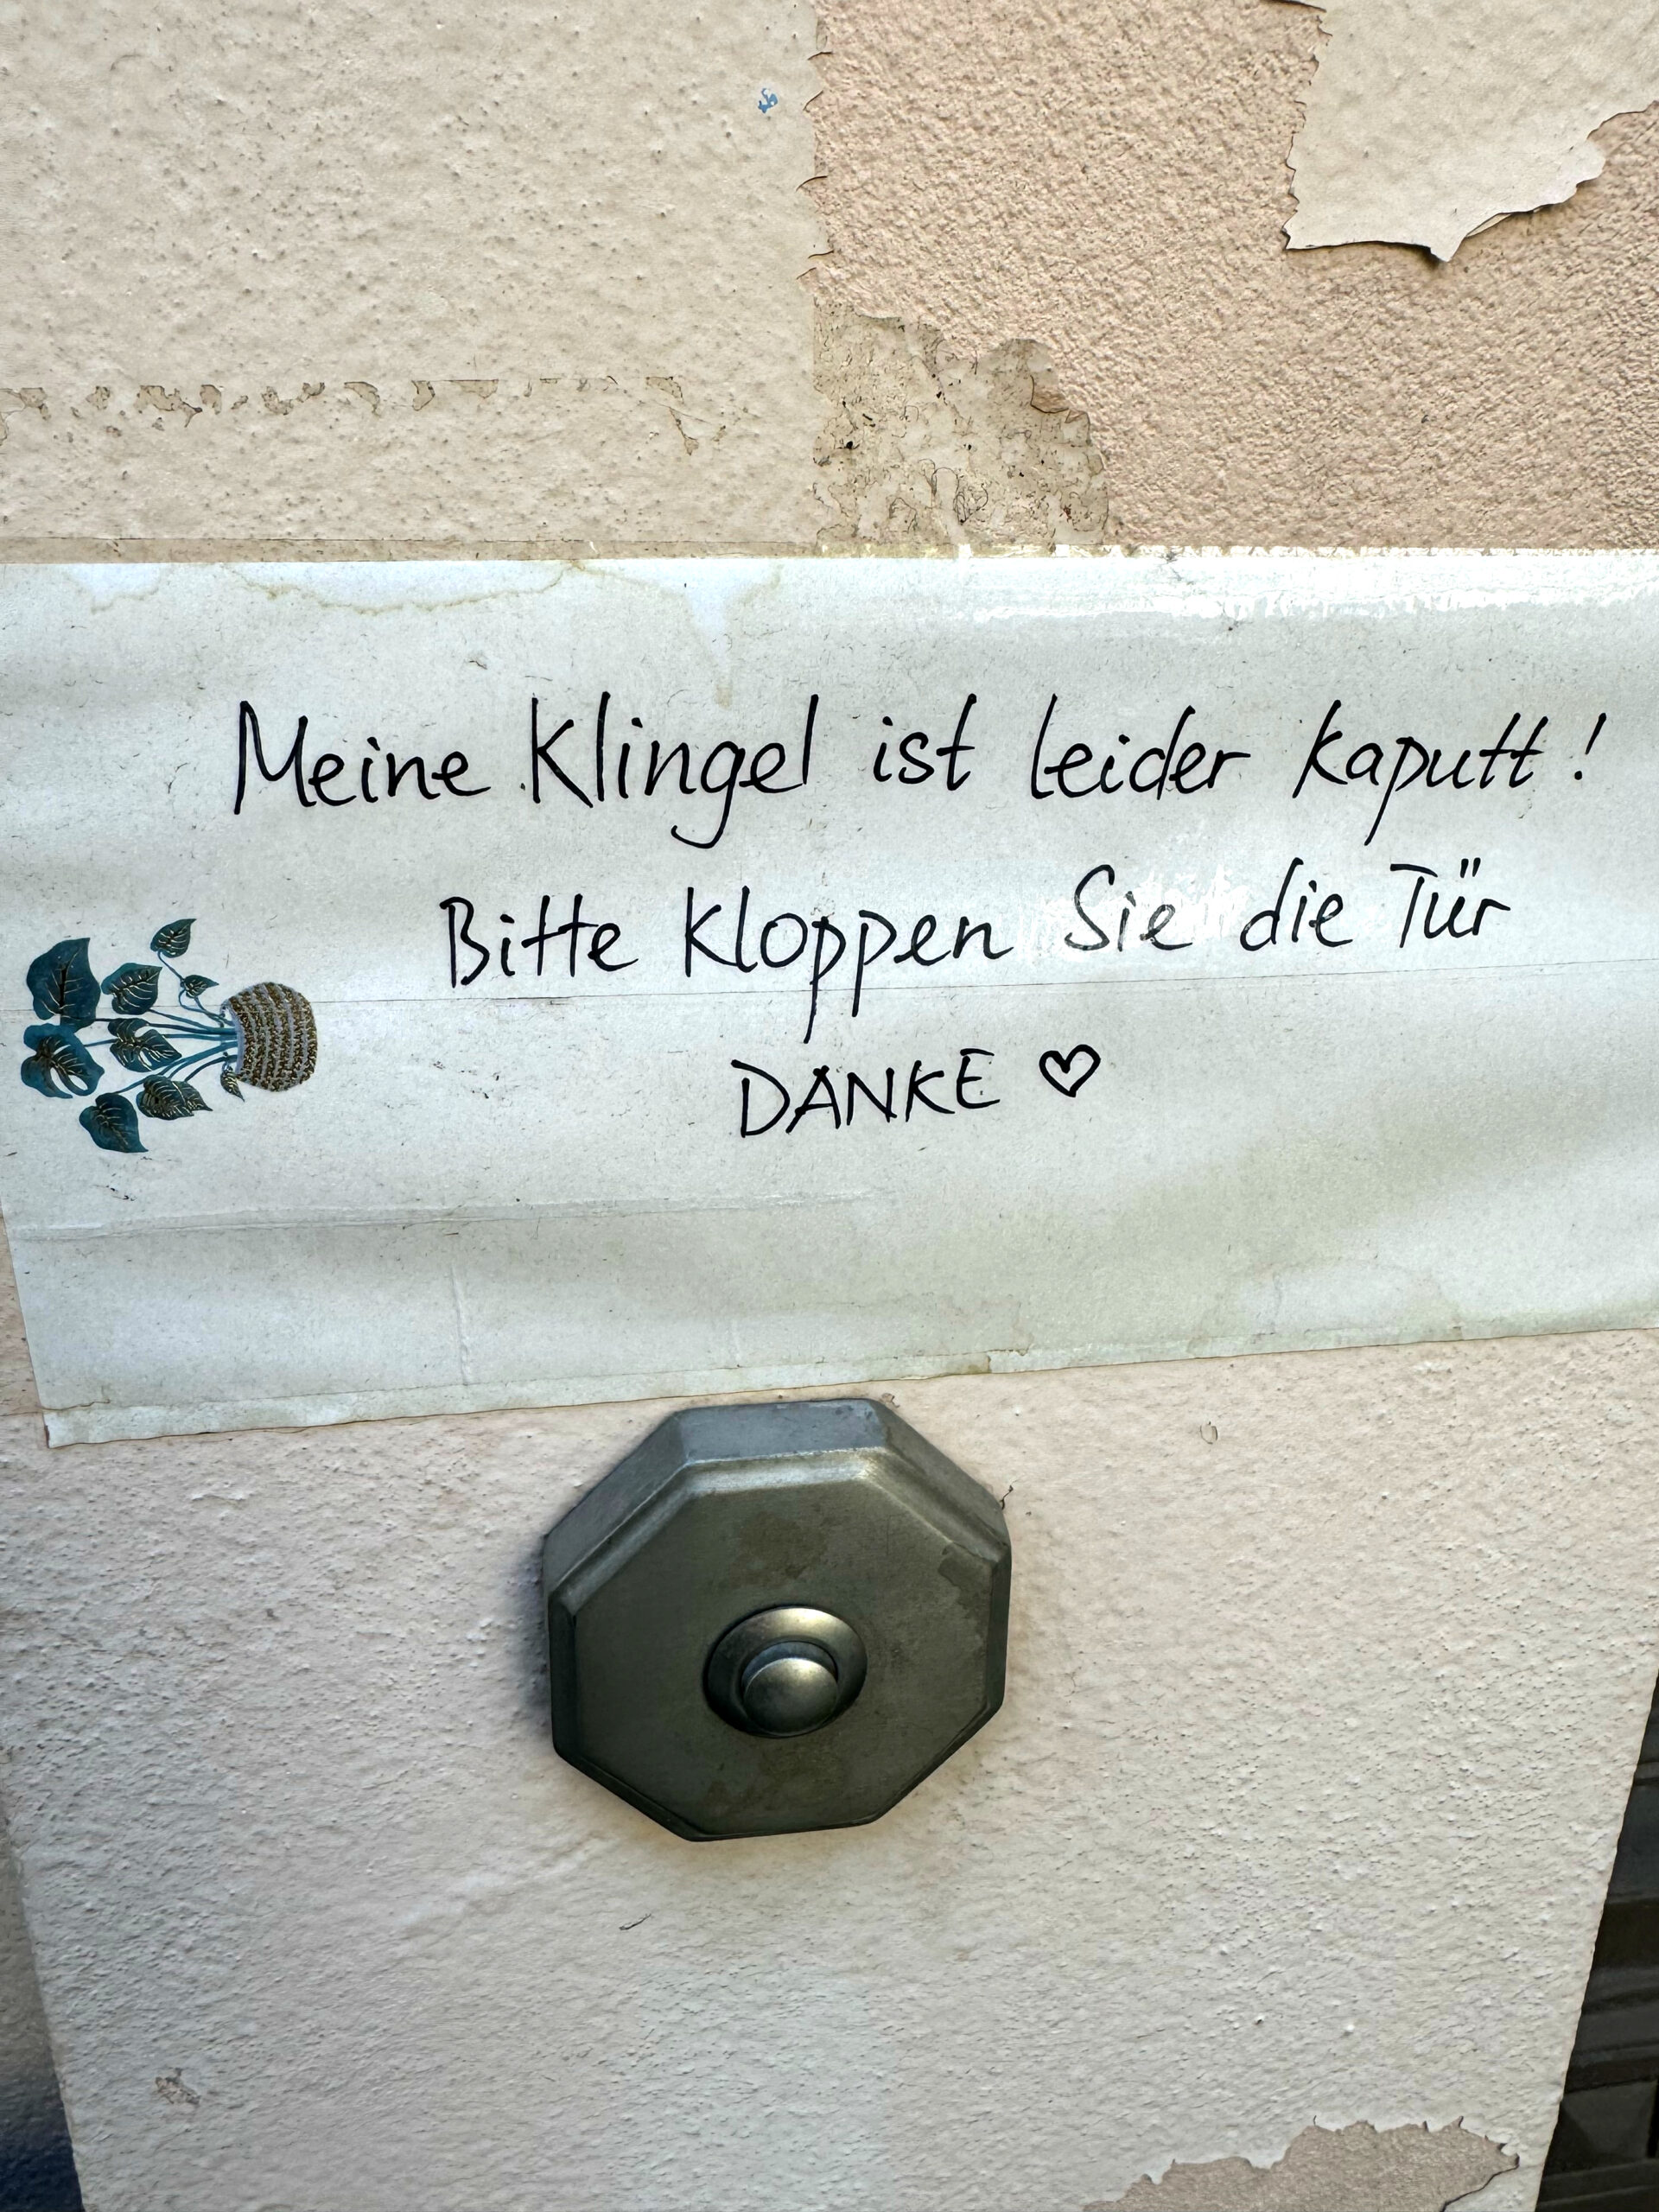 Meine Klingel ist leider kaputt!
Bitte Kloppen Sie die Tür
DANKE ♡